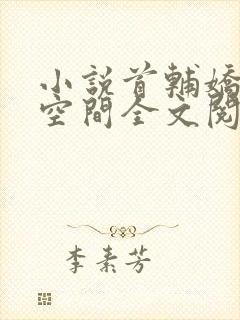 小說首輔嬌
空間全文閱
李素芳